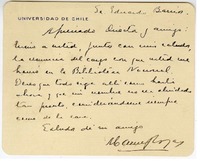 Sr Eduardo Barrios.
UNIVERSIDAD DE CHILE
Apreciado Director y amigo:
Envío a usted, junto con mi saludo,
la renuncia del cargo con que usted me
honró en la Biblioteca Nacional.
Deseo que todo siga allí como hasta
ahora y que mi nombre no sea olvidado
tan pronto, considerándome siempre
como de la casa.
Saludo de su amigo